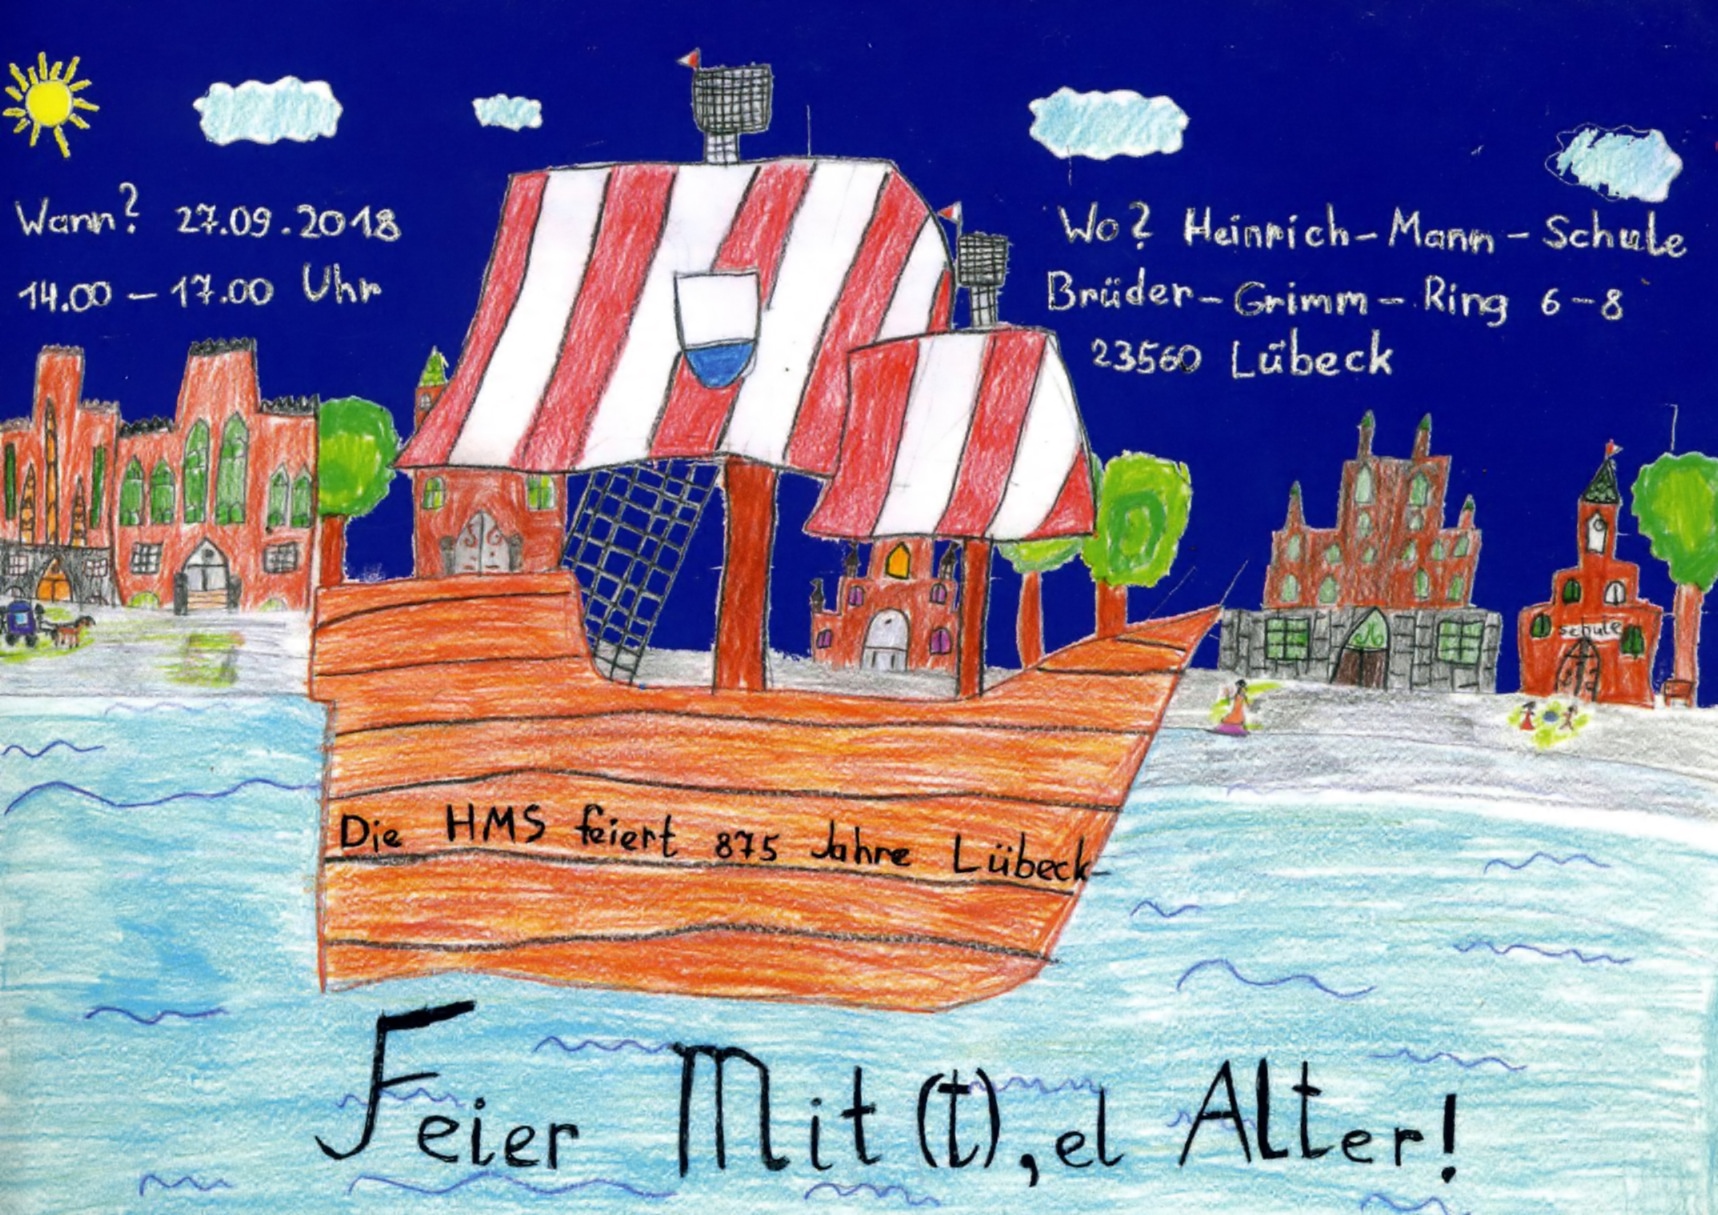 Wann? 27.09.2018
14.00 - 17.00 Uhr
Wo? Heinrich-Mann-Schule
Brüder-Grimm-Ring 6-8
23560 Lübeck
Schule
Die HMS feiert 875 Jahre Lübeck
Feier Mit(t),el Alter!